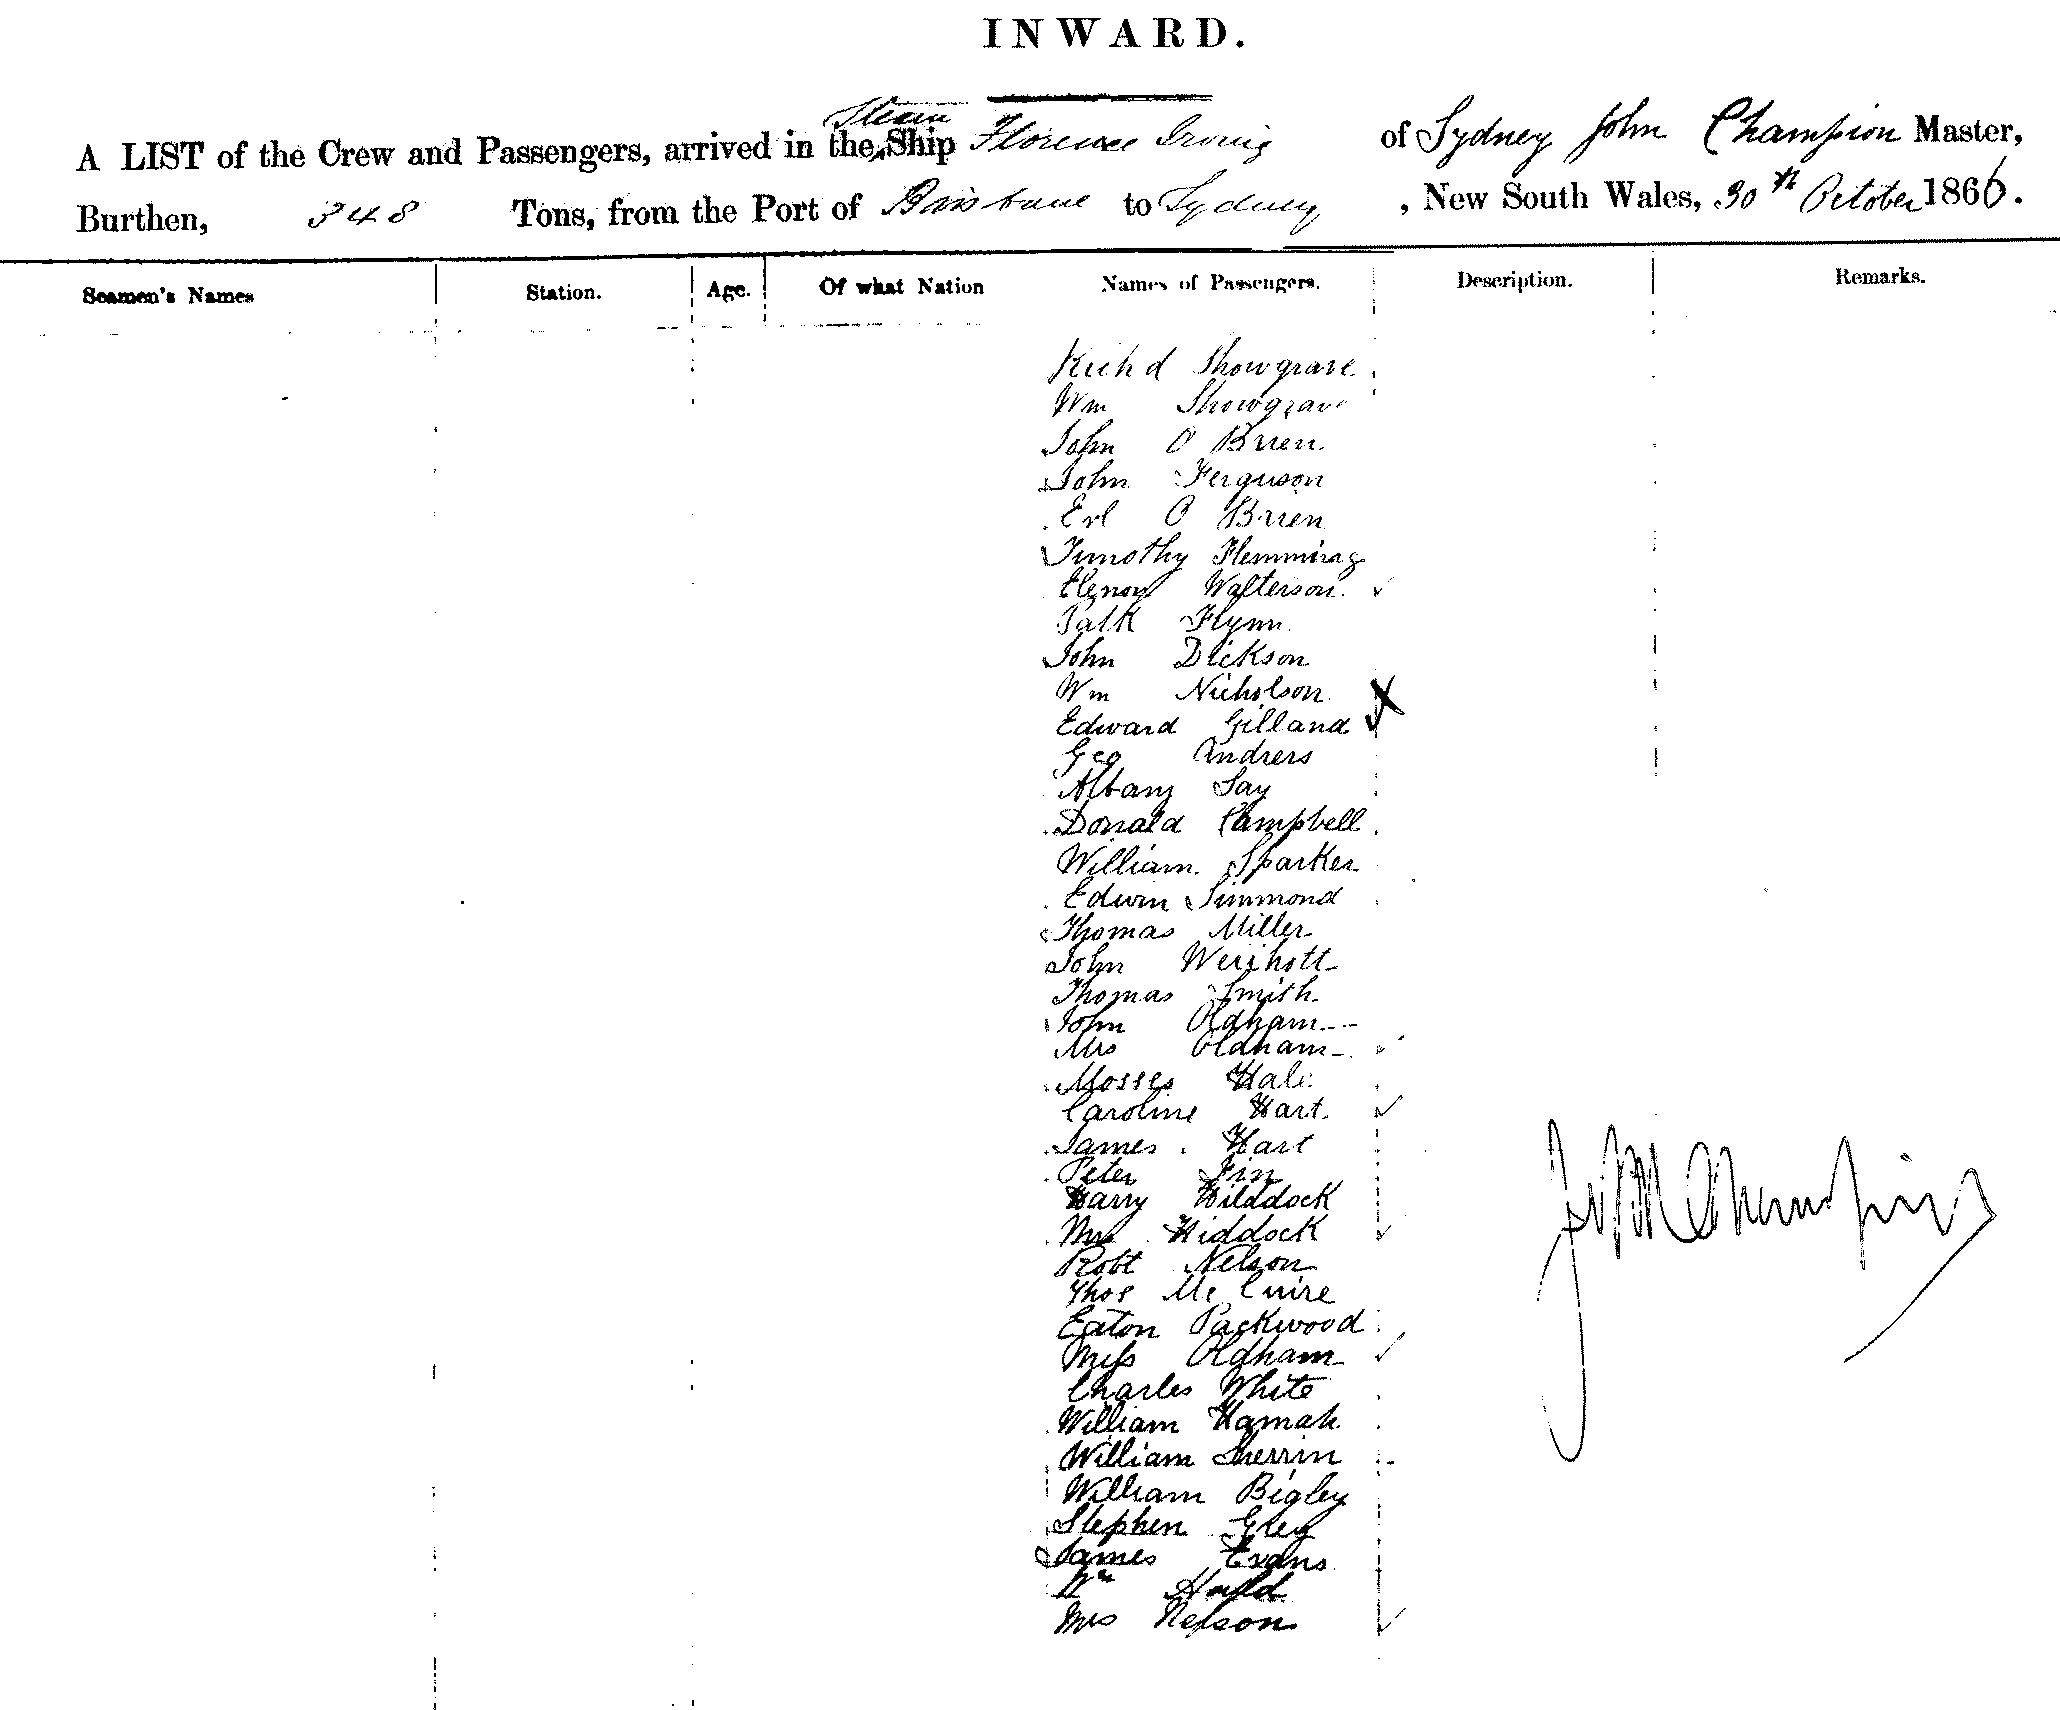 INWARD.
A LIST of the Crew and Passengers, arrived in the Steam Ship Florence Irving of Sydney John Champion Master,
Burthen, 348 Tons, from the Port of Brisbane to Sydney, New South Wales, 30th October 1866.
Seamen's Names Station. Age. Of what Nation Names of Passengers. Description. Remarks.
Richd Showgrave
Wm Showgrave
John O Brien
John Ferguson
O Brien
Timothy Flemming
Elenor Walterson
Patk Flynn
John Dickson
Wm Nicholson
Edward Gilland
Geo Andrers
Albany Say
Donald Campbell
William Sparker
Edwin Simmond
Thomas Miller
John
Thomas Smith
John Oldham
Mrs Oldham
Mosses Hale
Caroline Hart
James Hart
Peter Fin
Harry Hilddock
Mrs Hiddock
Robt Nelson
Thos Mc Cuire
Eaton Packwood
Miss Oldham
Charles White
William Hamah
William Sherrin
William Bigley
Stephen Grey
James Evans
Wm
Mrs Nelson
Champion